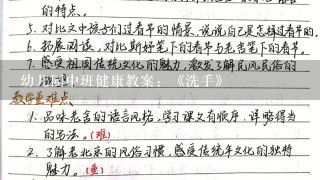 的特点。
5. 对比文中孩子们过春节的情景,说说自己是怎样过春节的。
6. 拓展阅读,对比斯好笔下的春节与老舍笔下的春节。
7. 感受祖国传统文化的魅力,激发了解民风民俗的
幼儿园中班健康教案:《洗手》
教学重难点
1. 品味老舍的语言风格,学习课文有顺序、详略得当
的写法。(难)
2. 了解老北京的风俗习惯,感受传统年文化的独特
魅力。(重)